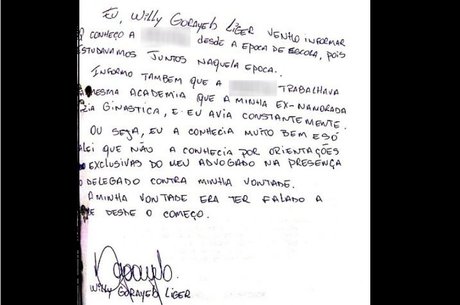 EU, WILLY GORAYEB LIGER VENHO INFORMAR
CONHEÇO A DESDE A EPOCA DE ESCOLA, POIS
ESTUDAVAMOS JUNTOS NAQUELA EPOCA.
INFORMO TAMBÉM QUE A TRABALHAVA
MESMA ACADEMIA QUE A MINHA EX-NAMORADA
ZIA GINASTICA, E EU AVIA CONSTANTEMENTE.
OU SEJA, EU A CONHECIA MUITO BEM E SÓ
LEI QUE NÃO A CONHECIA POR ORIENTAÇÕES
EXCLUSIVAS DO MEU ADVOGADO NA PRESENÇA
O DELEGADO CONTRA MINHA VONTADE.
A MINHA VONTADE ERA TER FALADO A
E DESDE O COMEÇO.
WILLY GORAYEB LIGER